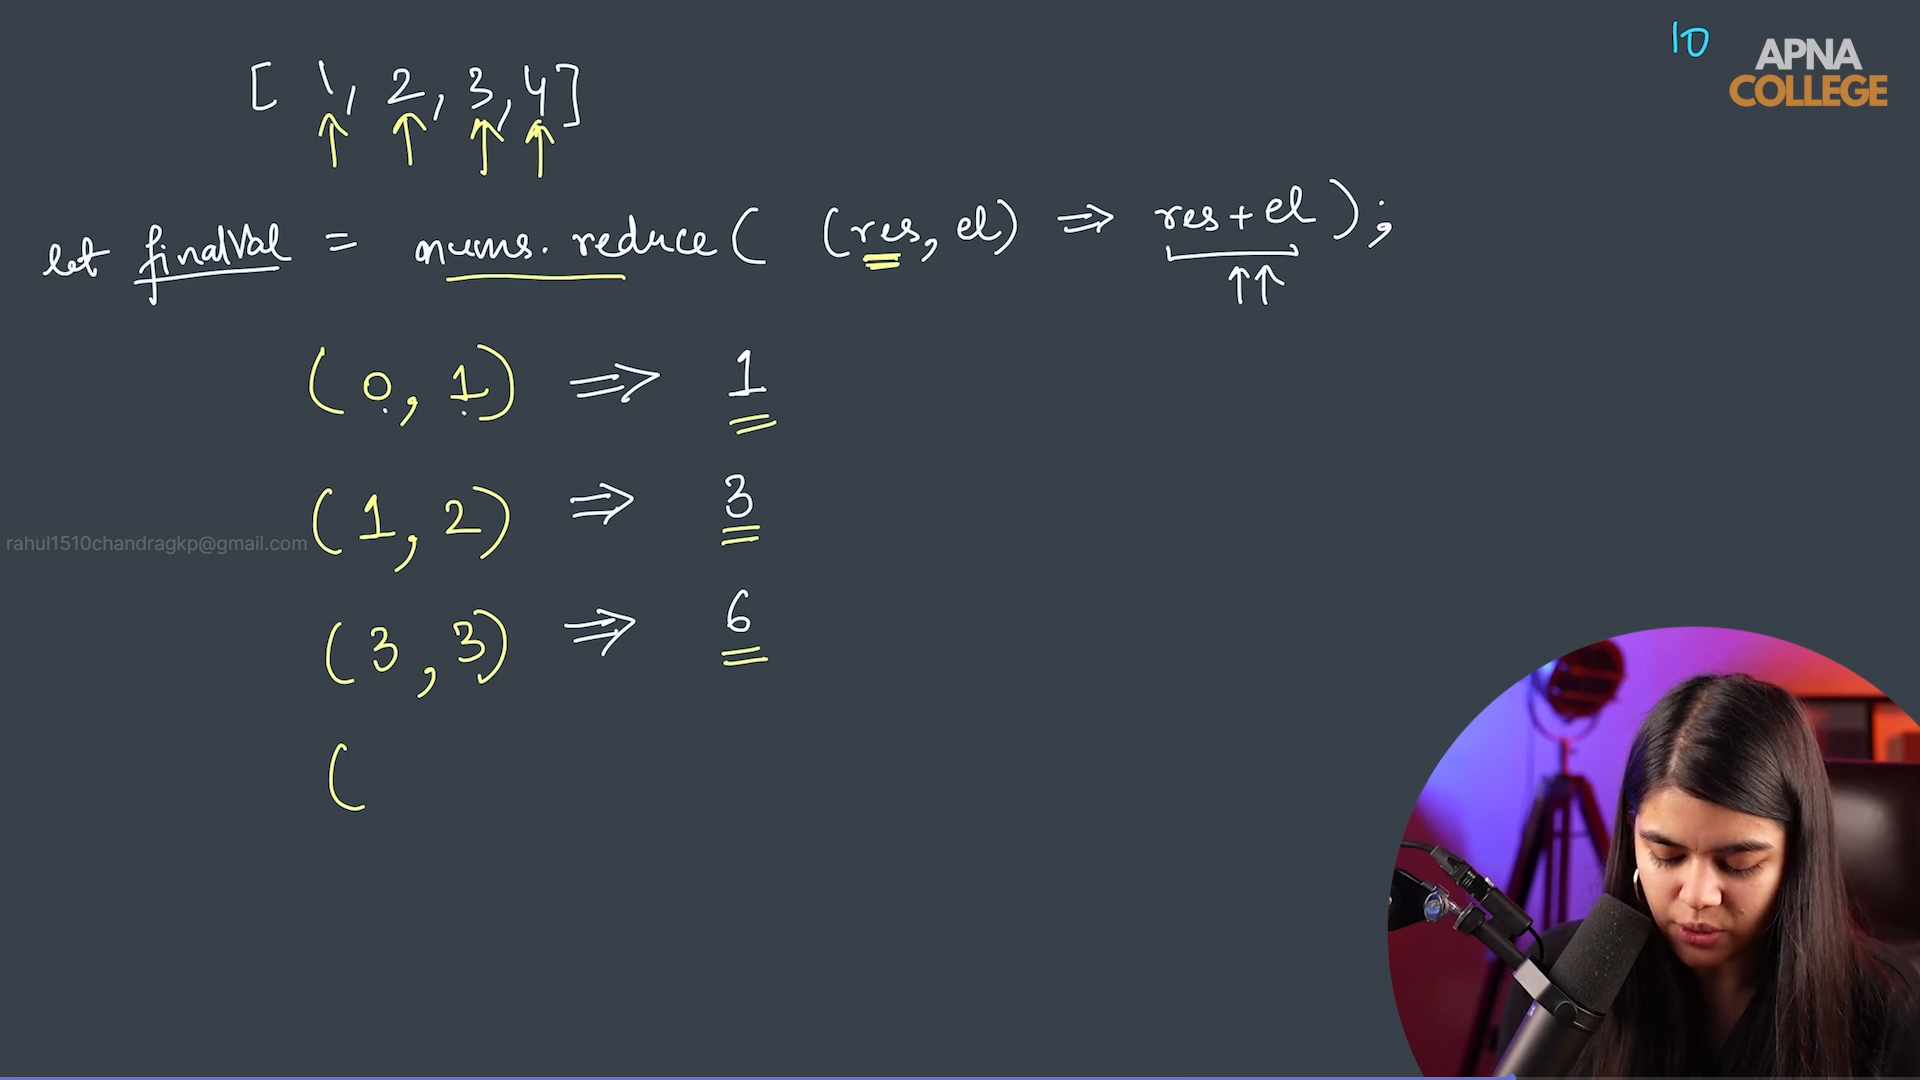 10
APNA
COLLEGE
[ 1, 2, 3, 4 ]
let finalVal = nums. reduce( (res, el) => res + el );
(0, 1) => 1
(1, 2) => 3
rahul1510chandragkp@gmail.com
(3, 3) => 6
(